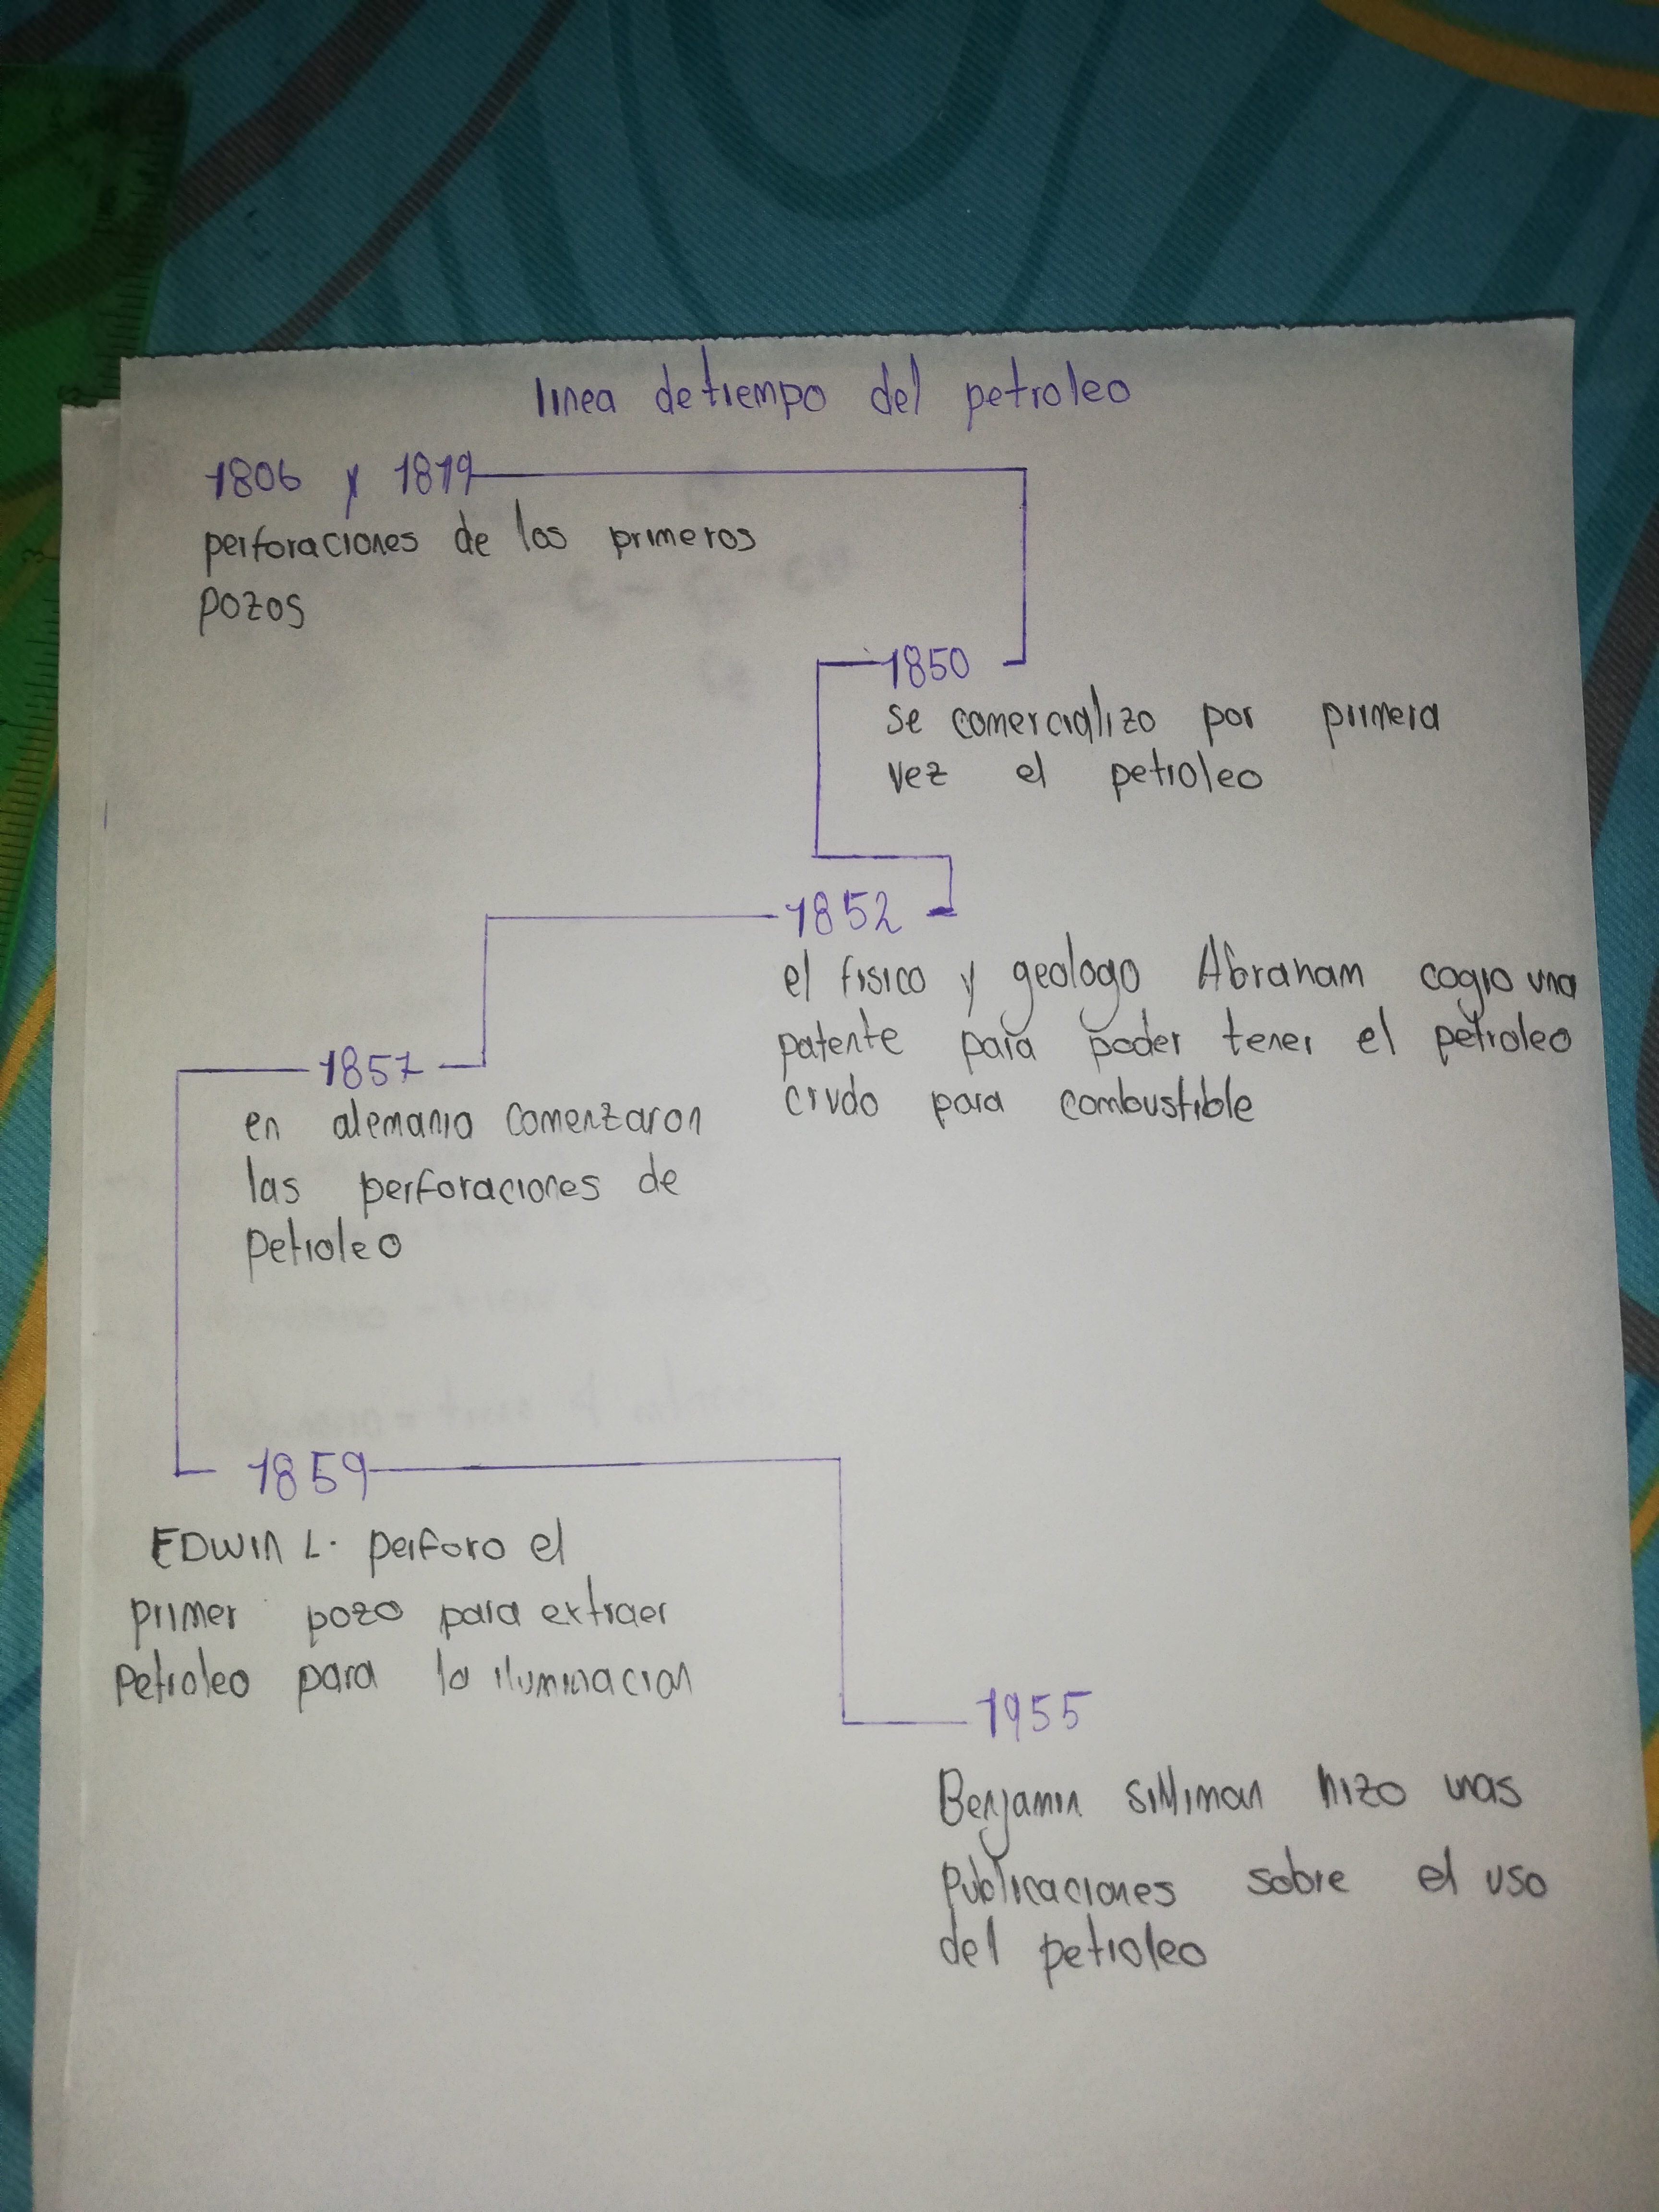 linea de tiempo del petroleo
1806 y 1819
perforaciones de los primeros
pozos
1850
se comercializo por primera
vez el petroleo
1852
el fisico y geologo Abraham cogio una
patente para poder tener el petroleo
crudo para combustible
1857
en alemania comenzaron
las perforaciones de
petroleo
1859
EDWIN L. perforo el
primer pozo para extraer
petroleo para la iluminacion
1955
Benjamin silliman hizo unas
publicaciones sobre el uso
del petroleo